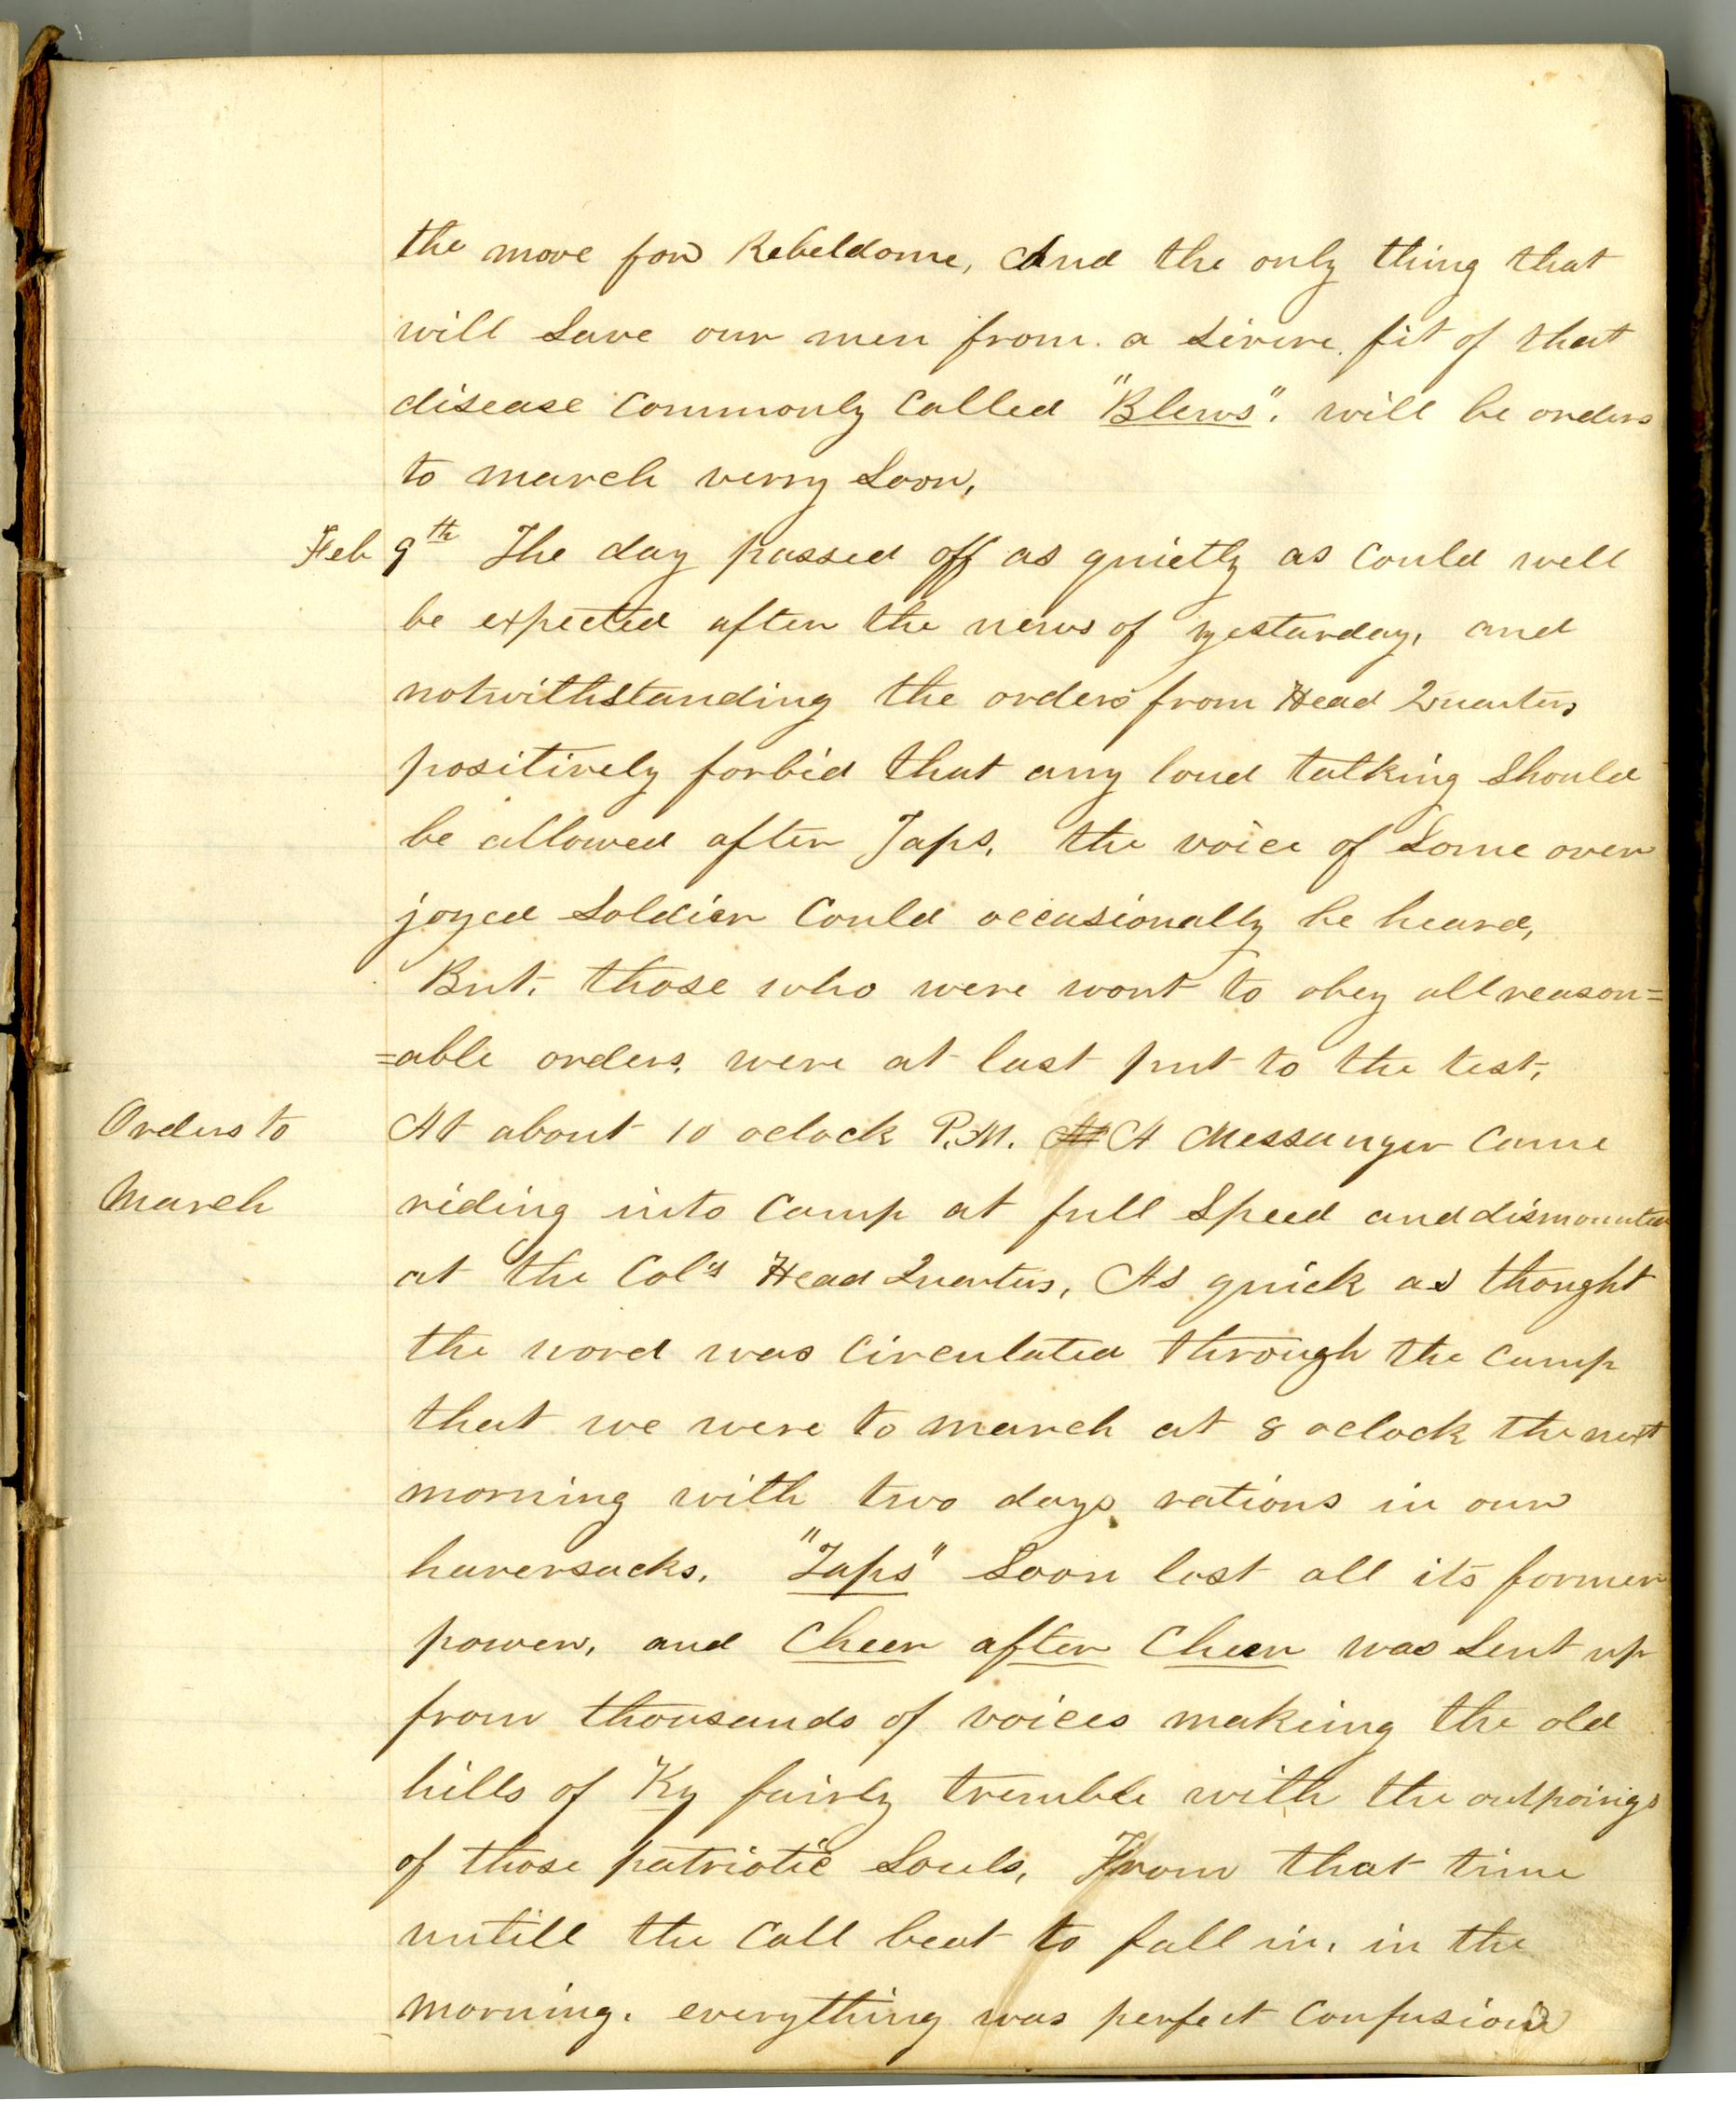 the move for Rebeldome, And the only thing that
will Save our men from. a Sivere. fit of that
disease Commonly Called "Blews". will be orders
to march verry Soon,
Feb 9th The day passed off as quietly as Could well
be expected after the news of yestarday, and
notwithstanding the orders from Head Quarters
positively forbid that any loud talking Should
be allowed after Taps, the voice of Some over
joyed Soldier Could occasionally be heard,
But, those who were wont to obey all reason=
=able orders, were at last put to the test,
Orders to
March
At about 10 oclock P.M. A Messanger Came
riding into Camp at full Speed and dismounted
at the Col's Head Quarters, As quick as thought
the word was Circulated through the Camp
that we were to march at 8 oclock the next
morning with two days rations in our
haversacks. "Taps" Soon lost all its former
power, and Cheer after Cheer was Sent up
from thousands of voices makeing the old
hills of Ky fairly tremble with the outpoirings
of those patriotic Souls, From that time
untill the Call beat to fall in, in the
morning. everything was perfect Confusion